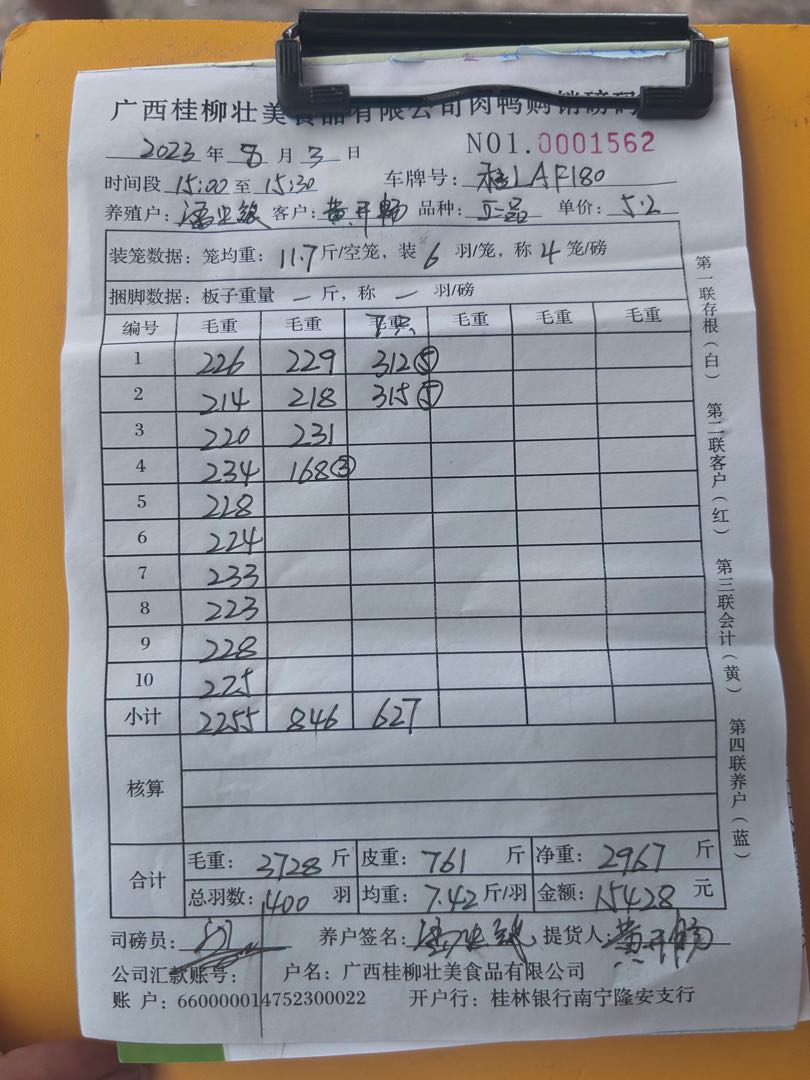 广西桂柳壮美食品有限公司肉鸭购销磅码
NO1.0001562
2023 年 8 月 3 日
时间段 15:00 至 15:30 车牌号: 桂LAF180
养殖户: 客户: 黄开畅 品种: 正品 单价: 5.2
装笼数据: 笼均重: 11.7 斤/空笼, 装 6 羽/笼, 称 4 笼/磅
捆脚数据: 板子重量 一 斤, 称 一 羽/磅
编号 毛重 毛重 毛重 毛重 毛重 毛重
1 226 229 312⑤
2 214 218 315⑤
3 220 231
4 234 168③
5 228
6 224
7 233
8 223
9 228
10 225
小计 2255 846 627
核算
合计 毛重: 3728 斤 皮重: 761 斤 净重: 2967 斤
总羽数: 400 羽 均重: 7.42 斤/羽 金额: 15428 元
司磅员: 养户签名: 提货人: 黄开畅
公司汇款账号: 户名: 广西桂柳壮美食品有限公司
账 户: 660000014752300022 开户行: 桂林银行南宁隆安支行
第一联存根(白) 第二联客户(红) 第三联会计(黄) 第四联养户(蓝)